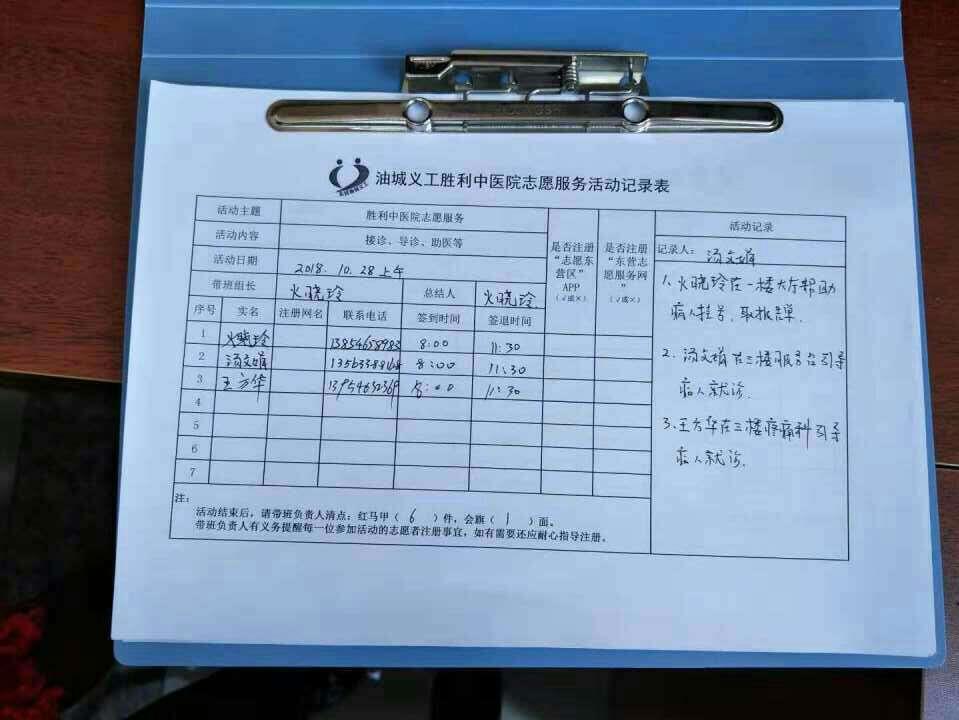 油城义工胜利中医院志愿服务活动记录表
活动主题 胜利中医院志愿服务
活动内容 接诊、导诊、助医等
活动日期 2018.10.28上午
带班组长 火晓玲 总结人 火晓玲
序号 实名 注册网名 联系电话 签到时间 签退时间
是否注册“志愿东营区”APP（√或×）
是否注册“东营志愿服务网”（√或×）
1 火晓玲 13854658983 8:00 11:30
2 汤文娟 8:00 11:30
3 王方华 8:00 11:30
4
5
6
7
注：
活动结束后，请带班负责人清点：红马甲（6）件，会旗（1）面。
带班负责人有义务提醒每一位参加活动的志愿者注册事宜，如有需要还应耐心指导注册。
活动记录
记录人：汤文娟
1、火晓玲在一楼大厅帮助
病人挂号，取报告单．
2、汤文娟在三楼服务台引导
病人就诊．
3、王方华在三楼疼痛科引导
病人就诊．